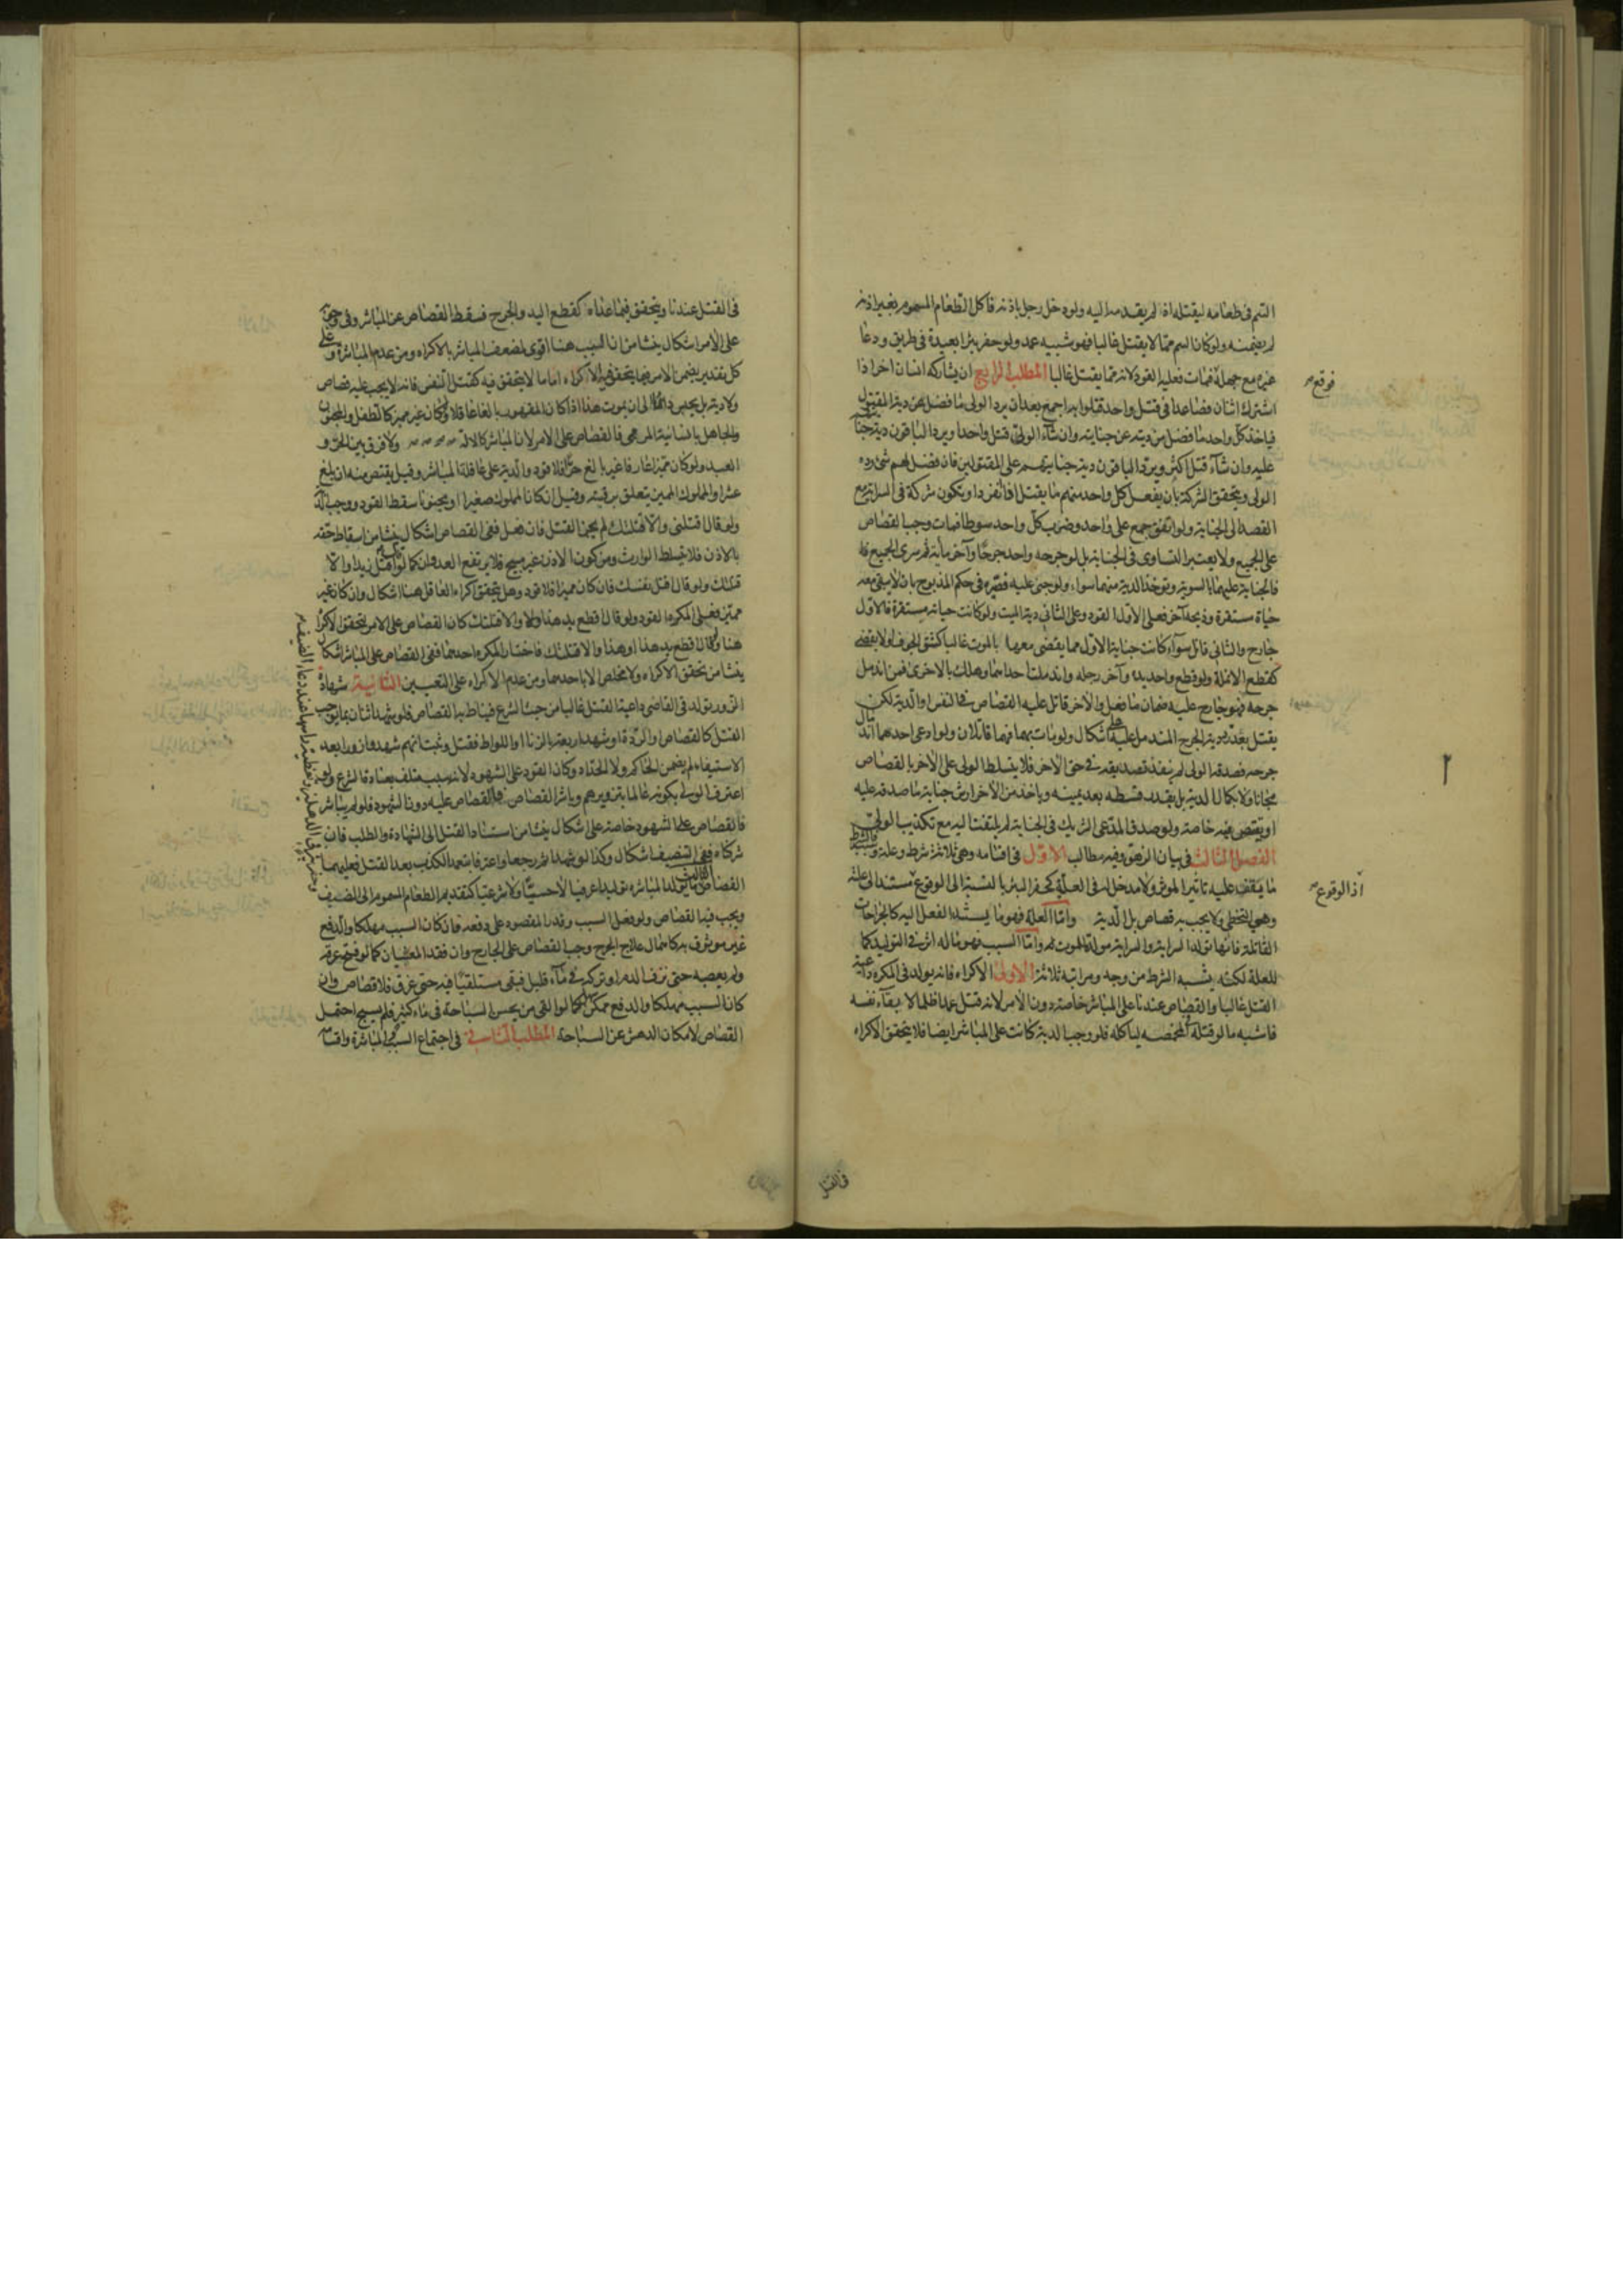 السم فى طعامه ليقتله اذا لم يقدمه اليه ولو دخل رجل باذنه فاكل الطعام المسموم بغير اذنه
لم يضمنه ولو كان السم مما لا يقتل غالبا فهو شبيه عمد ولو حفر بئرا بعيدة فى طريق ودعا
غيره مع جهله فمات فعليه القود لانه مما يقتل غالبا المطلب الرابع ان يشاركه انسان اخر اذا
فوقع
اشترك اثنان فصاعدا فى قتل واحد قتلوا به اجمع بعد ان يرد الولى ما فضل عن دية المقتول
فياخذ كل واحد ما فضل من ديته عن جنايته وان شاء الولى قتل واحدا ويرد الباقون دية جنا
عليه وان شاء قتل اكثر ويرد الباقون دية جنايتهم على المقتولين فان فضل لهم شئ رده
الولى ويتحقق الشركة بان يفعل كل واحد منهم ما يقتل لو انفرد او يكون شركة فى السراية مع
القصد الى الجناية ولو اتفق جمع على واحد وضرب كل واحد سوطا فمات وجب القصاص
على الجميع ولا يعتبر التساوى فى الجناية بل لو جرحه واحد جرحا وآخر مائة ثم سرى الجميع
فالجناية عليهما بالسوية ويؤخذ الدية منهما سواء ولو جنى عليه فصيره فى حكم المذبوح بان لا يبقى معه
حياة مستقرة وذبحه آخر فعلى الاول القود وعلى الثانى دية الميت ولو كانت حياته مستقرة فالاول
جارح والثانى قاتل سواء كانت جناية الاول مما يقضى معها بالموت غالبا كشق الجوف او لا يقضى
كقطع الانملة ولو قطع واحد يده وآخر رجله واندملت احدهما وهلك بالاخرى فمن اندمل
جرحه فهو جارح عليه ضمان ما فعل والآخر قاتل عليه القصاص فى النفس او الدية لكن
يقتل بعد رد دية الجرح المندمل على اشكال ولو مات بهما فهما قاتلان ولو ادعى احدهما اندمال
جرحه فصدقه الولى لم ينفذ تصديقه فى حق الآخر فلا يتسلط الولى على الآخر بالقصاص
مجانا ولا بكمال الدية بل بقدر قسطه بعد يمينه وياخذ من الآخر ارش جناية ما صدقه عليه
او يقتص فيه خاصة ولو صدق المدعى الشريك فى الجناية لم يلتفت اليه مع تكذيب الولى
الفصل الثالث فى بيان الزهوق وفيه مطالب الاول فى اقسامه وهى ثلاثة شرط وعلة وسبب فالشرط
ما يقف عليه تاثير المؤثر ولا مدخل له فى العلية كحفر البئر بالنسبة الى الوقوع مستند الى علته
اذ الوقوع
وهى التخطى ولا يجب به قصاص بل الدية واما العلة فهو ما يستند الفعل اليه كالجراحات
القاتلة فانها تولد السراية والسراية مولدة للموت واما السبب فهو ما له اثر فى التوليد كما
للعلة لكنه يشبه الشرط من وجه ومراتبه ثلاثة الاولى الاكراه فانه يولد فى المكره داعية
القتل غالبا والقصاص عندنا على المباشر خاصة دون الآمر لانه قتل عمدا ظلما لابقاء نفسه
فاشبه ما لو قتله فى المخمصة لياكله فلو وجب الدية كانت على المباشر ايضا فلا يتحقق الاكراه
فى القتل
فى القتل عندنا ويتحقق فيما عداه كقطع اليد والجرح فسقط القصاص عن المباشر وفى وجوبه
على الآمر اشكال ينشا من ان السبب هنا اقوى لضعف المباشر بالاكراه ومن عدم المباشرة وعلى
كل تقدير يضمن الآمر فيما يتحقق فيه الاكراه اما ما لا يتحقق فيه كقتل النفس فانه لا يجب عليه قصاص
ولا دية بل يحبس دائما الى ان يموت هذا اذا كان المقهور بالغا عاقلا ولو كان غير مميز كالطفل والمجنون
والجاهل بانسانية المرمى فالقصاص على الآمر لان المباشر كالالة ولا فرق بين الحر و
العبد ولو كان مميزا عارفا غير بالغ حرا فلا قود والدية على عاقلة المباشر وقيل يقتص منه ان بلغ
عشرا والمملوك المميز يتعلق برقبته وقيل ان كان المملوك صغيرا او مجنونا سقط القود ووجب الدية
ولو قال اقتلنى والا قتلتك لم يجز القتل فان فعل ففى القصاص اشكال ينشا من اسقاط حقه
بالاذن فلا يتسلط الوارث ومن كون الاذن غير مبيح فلا يرتفع العدوان كما لو قال اقتل زيدا والا
قتلتك ولو قال اقتل نفسك فان كان مميزا فلا قود وهل يتحقق اكراه العاقل هنا اشكال وان كان غير
مميز فعلى المكره القود ولو قال اقطع يد هذا والا قتلتك كان القصاص على الآمر لتحقق الاكراه
هنا ولو قال اقطع يد هذا او هذا والا قتلتك فاختار المكره احدهما ففى القصاص على المباشر اشكال
ينشا من تحقق الاكراه ولا مخلص الا باحدهما ومن عدم الاكراه على التعيين الثانية شهادة
الزور تولد فى القاضى داعية القتل غالبا من حيث الشرع فيناط به القصاص فلو شهد اثنان بما يوجب
القتل كالقصاص والردة او شهد اربعة بالزنا او اللواط فقتل وثبت انهم شهدوا زورا بعد
الاستيفاء لم يضمن الحاكم ولا الحداد وكان القود على الشهود لانه سبب متلف بعادة الشرع ولو
اعترف الولى بكونه عالما بتزويرهم وباشر القصاص فالقصاص عليه دون الشهود فلو لم يباشر
فالقصاص على الشهود خاصة على اشكال ينشا من استناد القتل الى الشهادة والطلب فان
شركناه ففى التنصيف اشكال وكذا لو شهدا ثم رجعا واعترفا بتعمد الكذب بعد القتل فعليهما
القصاص الثالث ما يولد المباشرة توليدا عرفيا لا حسيا ولا شرعيا كتقديم الطعام المسموم الى الضيف
ويجب فيه القصاص ولو فعل السبب وقدر المقصود على دفعه فان كان السبب مهلكا والدفع
غير موثوق به كاهمال علاج الجرح وجب القصاص على الجارح وان فقد المعنيان كما لو فتح عرقه
ولم يعصبه حتى نزف الدم او تركه فى ماء قليل فبقى مستلقيا فيه حتى غرق فلا قصاص وان
كان السبب مهلكا والدفع ممكن كما لو القى من يحسن السباحة فى ماء كثير فلم يسبح احتمل
القصاص لامكان الدهش عن السباحة المطلب الثانى فى اجتماع السبب والمباشرة واقسامه